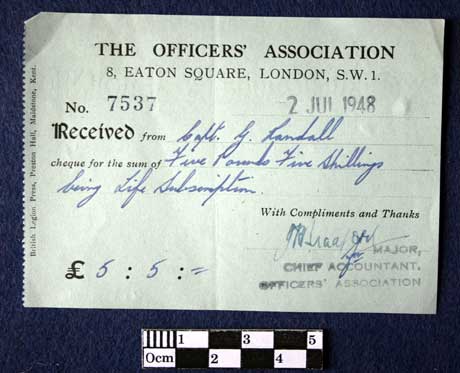 THE OFFICERS' ASSOCIATION
8, EATON SQUARE, LONDON, S.W.1.
No. 7537 2 JUL 1948
Received from Capt. G. Randall
cheque for the sum of Five Pounds Five Shillings
being Life Subscription.
With Compliments and Thanks
MAJOR,
CHIEF ACCOUNTANT.
OFFICERS' ASSOCIATION
£ 5 : 5 : =
British Legion Press, Preston Hall, Maidstone, Kent.
0cm 1 2 3 4 5